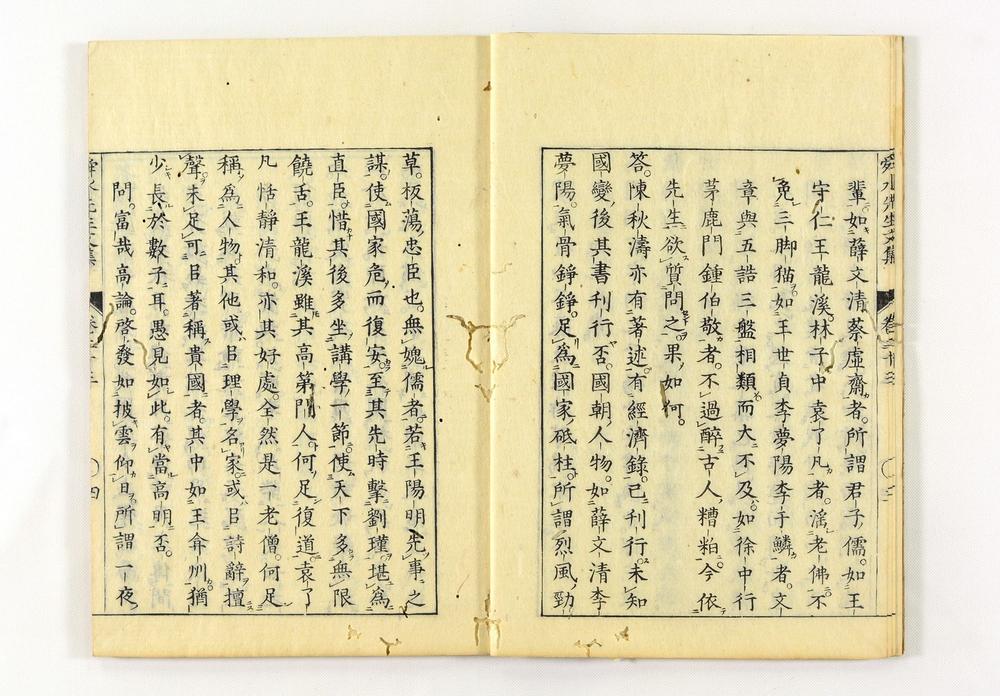 輩如薛文清蔡虛齋者所謂君子儒如王
守仁王龍溪林子中袁了凡者滛老佛不
免三脚猫如王世貞李夢陽李于鱗者文
章與五誥三盤相類而大不及如徐中行
茅鹿門鍾伯敬者不過醉古人糟粕今依
先生欲質問之果如何。
答。陳秋濤亦有著述。有經濟錄。已刊行。未知
國變後其書刊行否。國朝人物。如薛文清李
夢陽。氣骨錚錚。足為國家砥柱。所謂烈風勁
草。板蕩忠臣也。無媿儒者。若王陽明先事之
謀。使國家危而復安。至其先時擊劉瑾。堪為
直臣。惜其後多坐講學一節。使天下多無限
饒舌。王龍溪雖其高第門人。何足復道。袁了
凡恬靜清和。亦其好處。全然是一老僧。何足
稱為人物。其他或㠯理學名家。或㠯詩辭擅
聲。未足可㠯著稱貴國者。其中如王弇州。猶
少長於數子耳。愚見如此。有當高明否。
問。富哉高論。啓發如披雲仰日。所謂一夜
卷二十三
四